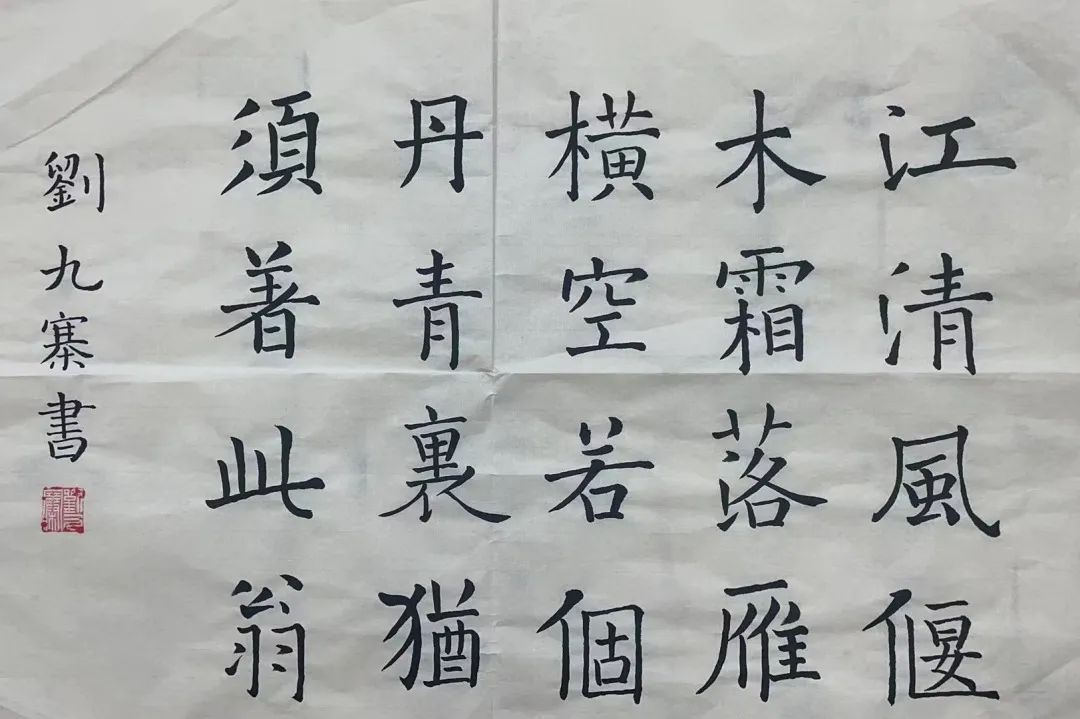 江清風偃
木霜落雁
橫空若個
丹青裏猶
須著此翁
劉九寨書